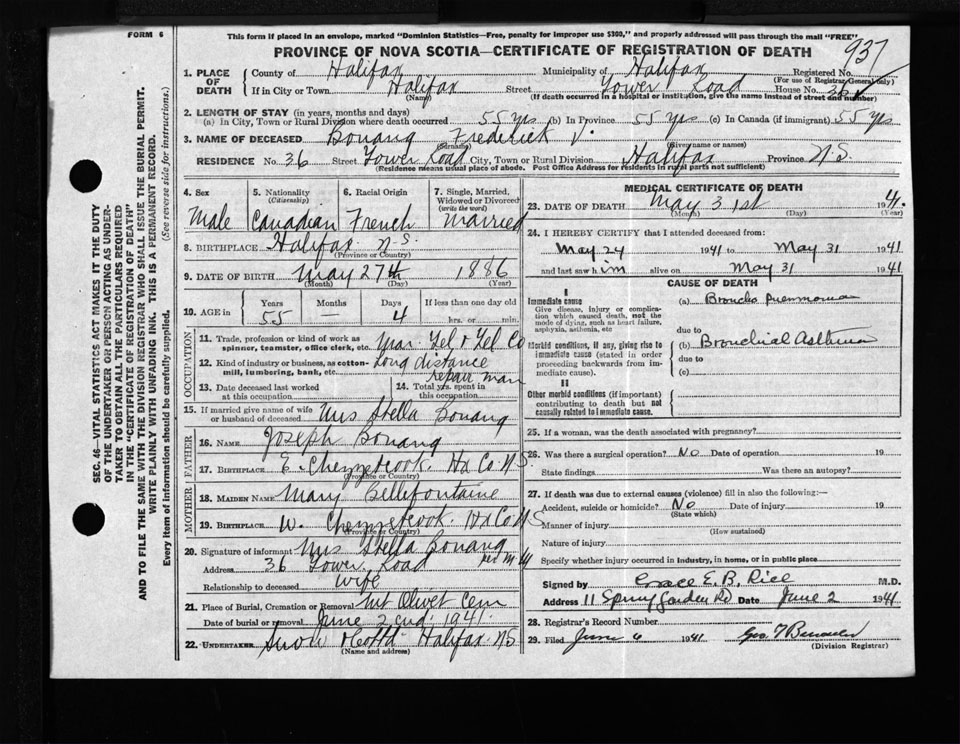 FORM 6
This form if placed in an envelope, marked "Dominion Statistics—Free, penalty for improper use $300," and properly addressed will pass through the mail "FREE"
PROVINCE OF NOVA SCOTIA—CERTIFICATE OF REGISTRATION OF DEATH
937
SEC. 46—VITAL STATISTICS ACT MAKES IT THE DUTY
OF THE UNDERTAKER OR PERSON ACTING AS UNDER-
TAKER TO OBTAIN ALL THE PARTICULARS REQUIRED
IN THE "CERTIFICATE OF REGISTRATION OF DEATH"
AND TO FILE THE SAME WITH THE DIVISION REGISTRAR WHO SHALL ISSUE THE BURIAL PERMIT.
WRITE PLAINLY WITH UNFADING INK. THIS IS A PERMANENT RECORD.
Every item of information should be carefully supplied. (See reverse side for instructions.)
1. PLACE OF DEATH
County of Halifax Municipality of Halifax Registered No.
(For use of Registrar General only)
If in City or Town Halifax Street Tower Road House No. 36
(Name) (If death occurred in a hospital or institution, give the name instead of street and number)
2. LENGTH OF STAY (in years, months and days)
(a) In City, Town or Rural Division where death occurred 55 yrs (b) In Province 55 yrs (c) In Canada (if immigrant) 55 yrs
3. NAME OF DECEASED Bonang Frederick V.
(Surname) (Given name or names)
RESIDENCE No. 36 Street Tower Road City, Town or Rural Division Halifax Province N.S.
(Residence means usual place of abode. Post Office Address for residents in rural parts not sufficient)
4. Sex Male
5. Nationality (Citizenship) Canadian
6. Racial Origin French
7. Single, Married, Widowed or Divorced (write the word) Married
8. BIRTHPLACE Halifax N.S.
(Province or Country)
9. DATE OF BIRTH May 27th 1886
(Month) (Day) (Year)
10. AGE in Years 55 Months — Days 4 If less than one day old hrs. or min.
OCCUPATION
11. Trade, profession or kind of work as spinner, teamster, office clerk, etc. Mar. Tel & Tel Co
12. Kind of industry or business, as cotton-mill, lumbering, bank, etc. Long distance
repair man
13. Date deceased last worked at this occupation
14. Total yrs. spent in this occupation
15. If married give name of wife or husband of deceased Mrs Stella Bonang
FATHER
16. NAME Joseph Bonang
17. BIRTHPLACE E. Chezzetcook. Ha Co N.S.
(Province or Country)
MOTHER
18. MAIDEN NAME Mary Bellefontaine
19. BIRTHPLACE W. Chezzetcook. Ha Co N S
(Province or Country)
20. Signature of informant Mrs Stella Bonang
Address 36 Tower Road per
Relationship to deceased wife
21. Place of Burial, Cremation or Removal Mt Olivet Cem
Date of burial or removal June 2nd 1941.
22. UNDERTAKER Snow & Co Ltd Halifax NS
(Name and Address)
MEDICAL CERTIFICATE OF DEATH
23. DATE OF DEATH May 31st 194
(Month) (Day) (Year)
24. I HEREBY CERTIFY that I attended deceased from:
May 24 1941 to May 31 1941
and last saw him alive on May 31 1941
CAUSE OF DEATH
I
Immediate cause
Give disease, injury or complication which caused death, not the mode of dying, such as heart failure, asphyxia, asthenia, etc
(a) Broncho pneumonia
due to
Morbid conditions, if any, giving rise to immediate cause (stated in order proceeding backwards from immediate cause).
(b) Bronchial Asthma
due to
(c)
II
Other morbid conditions (if important) contributing to death but not causally related to immediate cause.
25. If a woman, was the death associated with pregnancy?
26. Was there a surgical operation? No Date of operation 19
State findings Was there an autopsy?
27. If death was due to external causes (violence) fill in also the following:—
Accident, suicide or homicide? No Date of injury 19
(State which)
Manner of injury
(How sustained)
Nature of injury
Specify whether injury occurred in industry, in home, or in public place
Signed by Grace E. B. Rice M.D.
Address 11 Spring Garden Rd Date June 2 1941
28. Registrar's Record Number
29. Filed June 6 1941 Geo.
(Division Registrar)